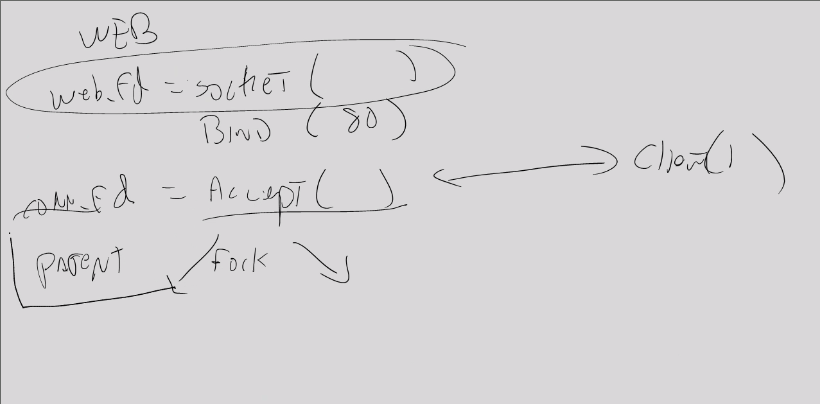 WEB
web_fd = socket ( )
BIND ( 80 )
conn_fd = Accept ( ) Client( )
PARENT fork